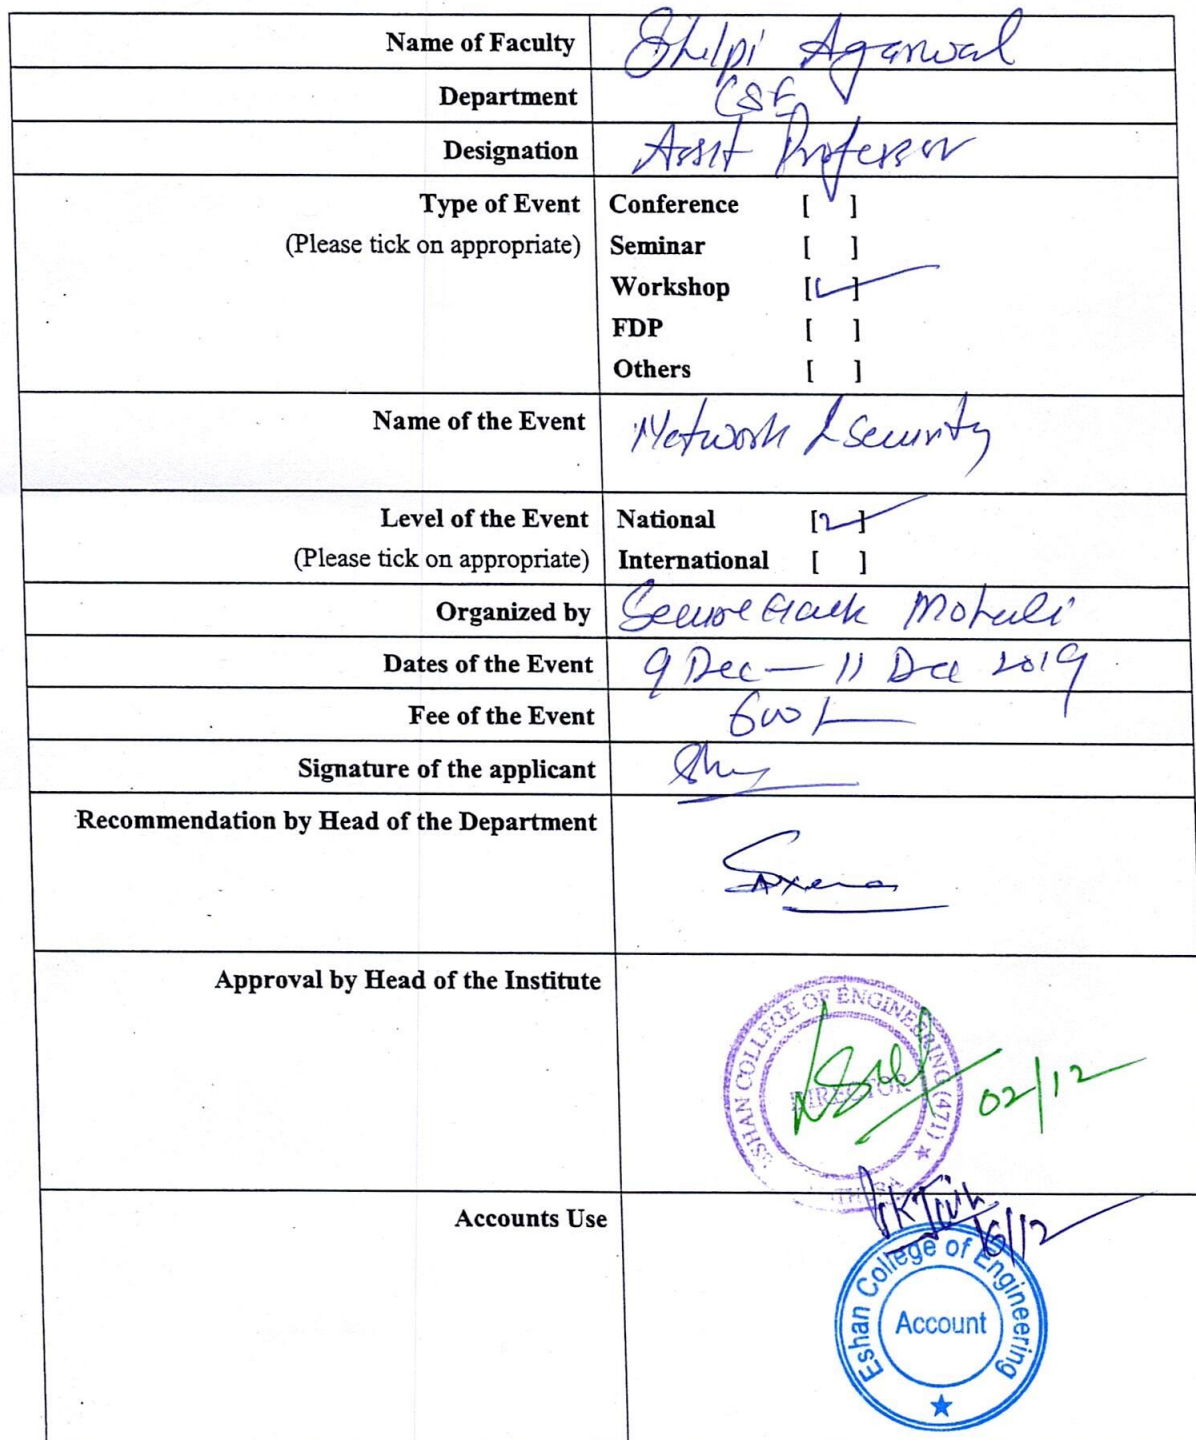 Name of Faculty Shilpi Agarwal
Department CSE
Designation Asst Professor
Type of Event Conference [ ]
(Please tick on appropriate) Seminar [ ]
Workshop [✓]
FDP [ ]
Others [ ]
Name of the Event Network & Security
Level of the Event National [✓]
(Please tick on appropriate) International [ ]
Organized by Secure Hack Mohali
Dates of the Event 9 Dec — 11 Dec 2019
Fee of the Event 600/-
Signature of the applicant
Recommendation by Head of the Department Saxena
Approval by Head of the Institute
ESHAN COLLEGE OF ENGINEERING (471) ★
DIRECTOR
02/12
Accounts Use
PK Jain
16/12
Eshan College of Engineering
Account
★